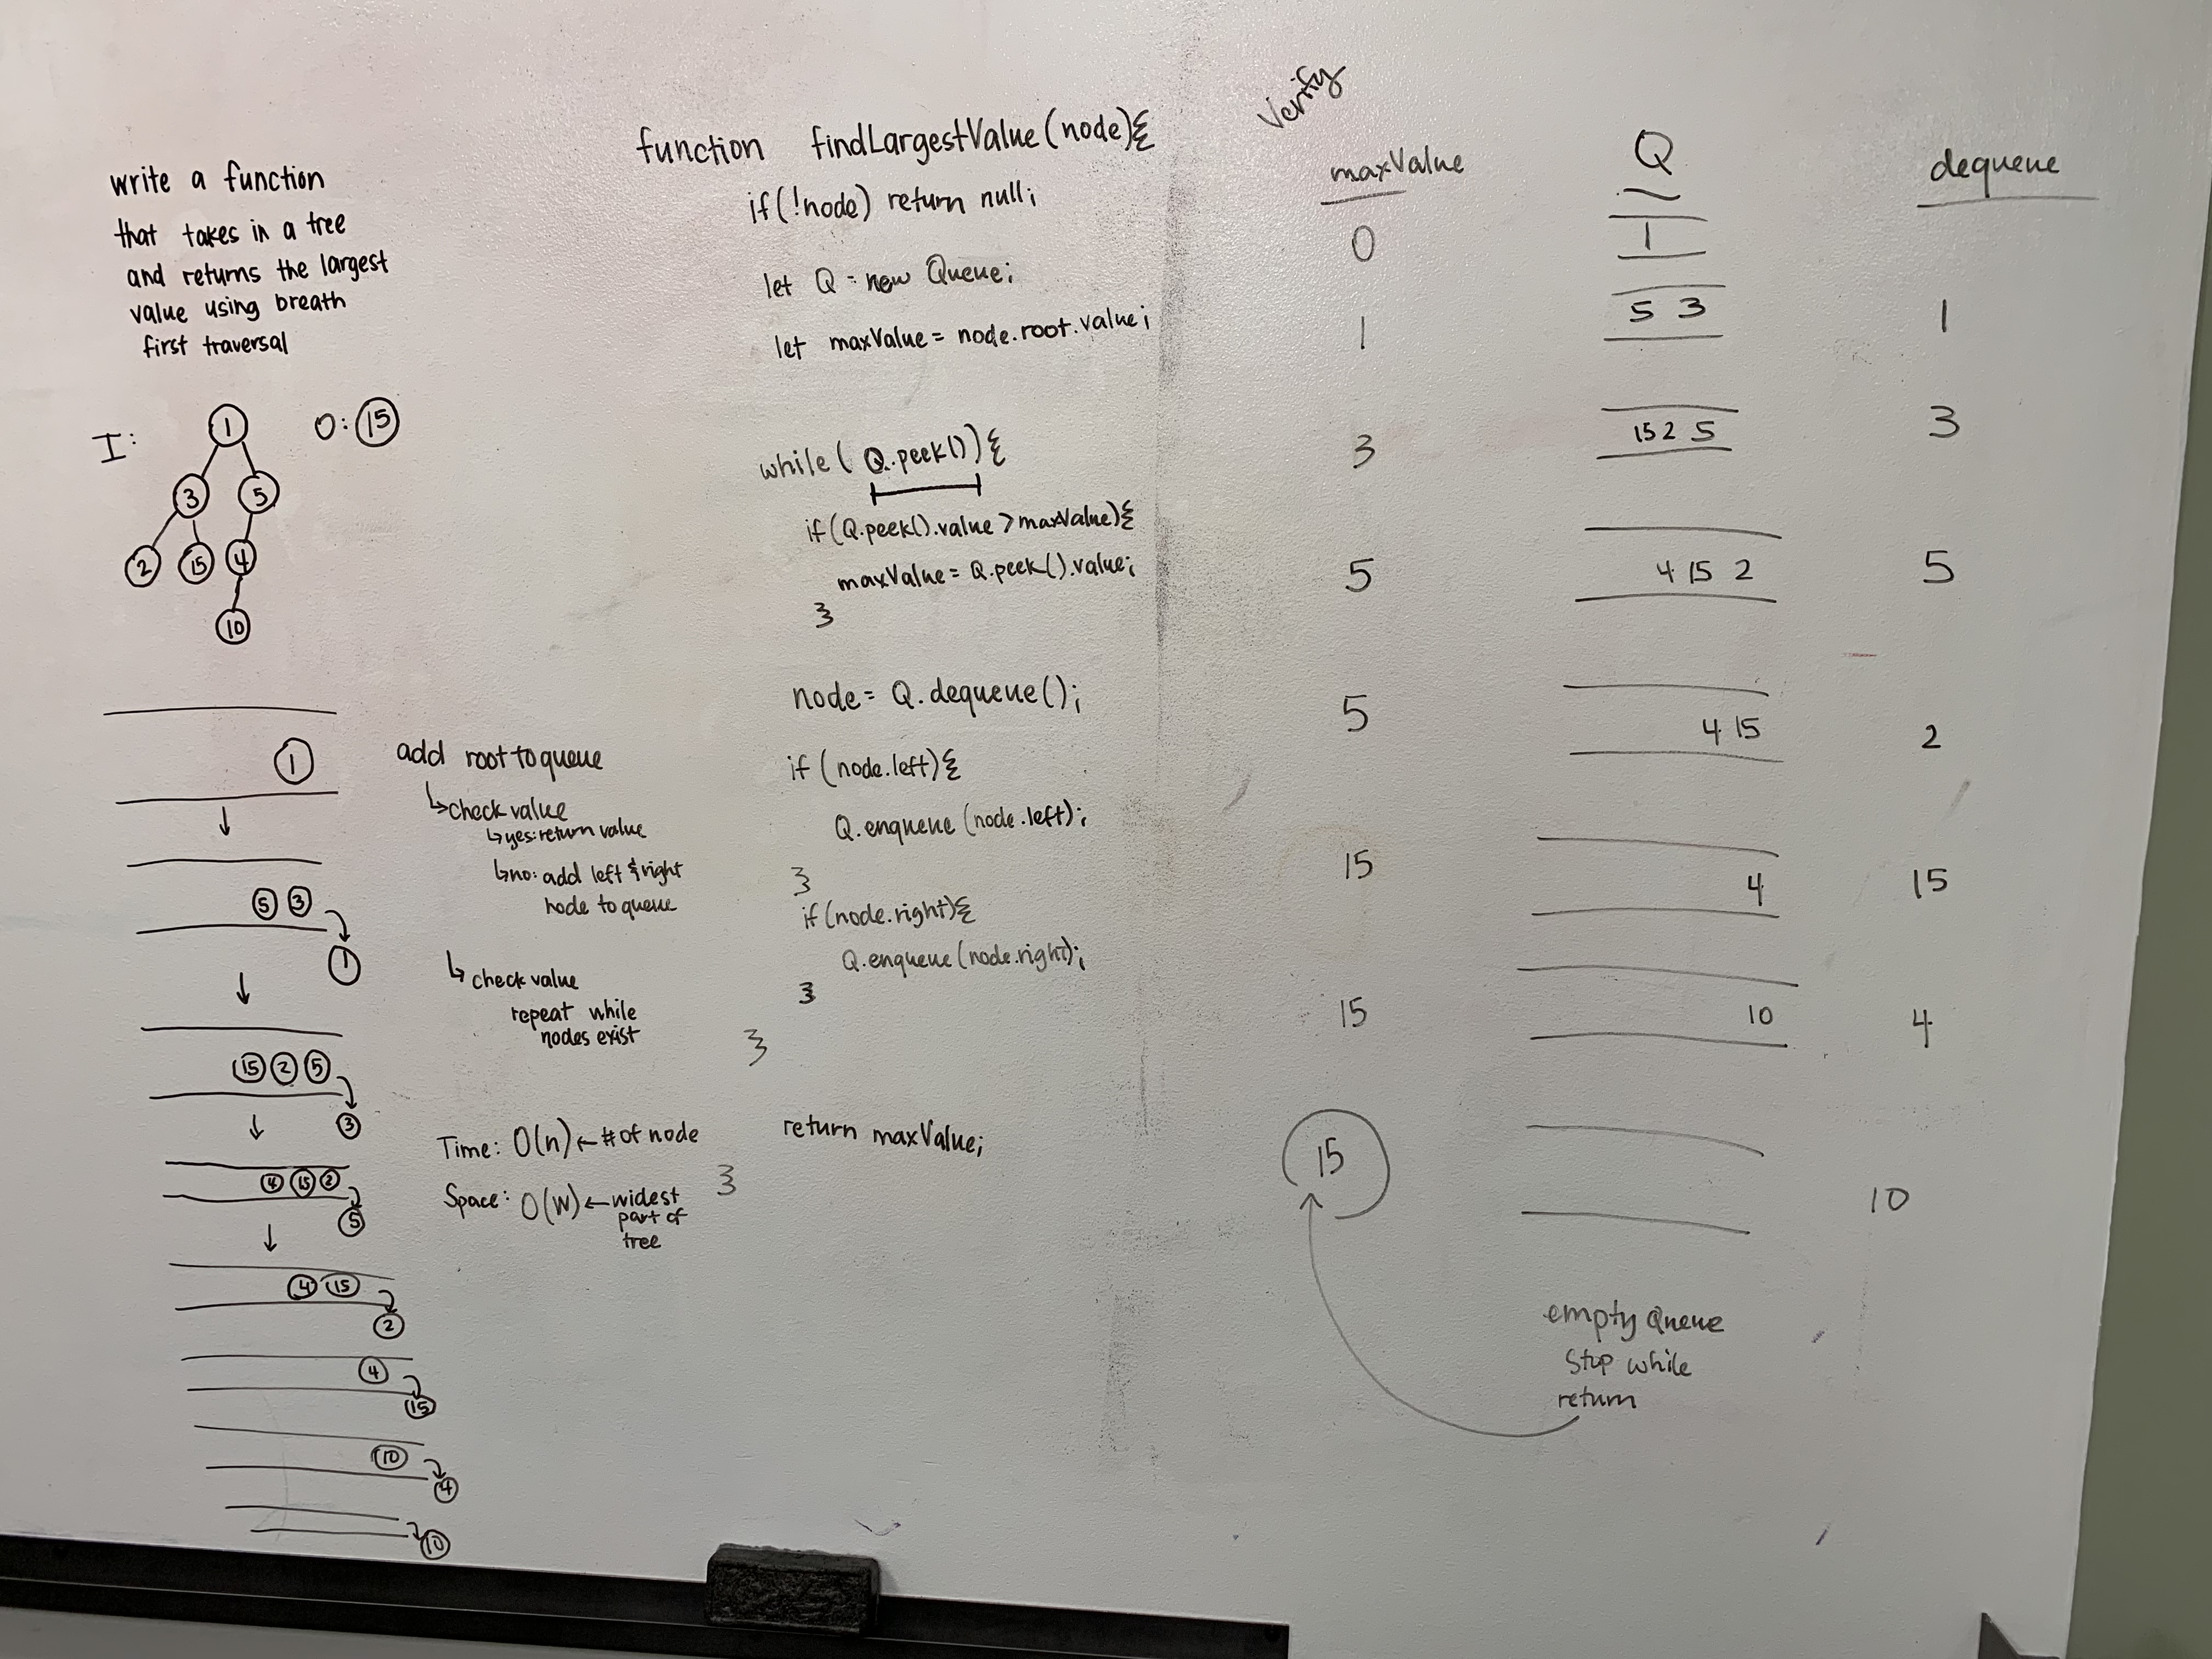 write a function
that takes in a tree
and returns the largest
value using breath
first traversal
I:
O: 15
1
3 5
2 15 4
10
1
5 3
1
15 2 5
3
4 15 2
5
4 15
2
4
15
10
4
10
add root to queue
↳ check value
↳ yes: return value
↳ no: add left & right
node to queue
↳ check value
repeat while
nodes exist
Time: O(n) ← # of node
Space: O(w) ← widest
part of
tree
function findLargestValue(node){
if(!node) return null;
let Q = new Queue;
let maxValue = node.root.value;
while( Q.peek()){
if(Q.peek().value > maxValue){
maxValue = Q.peek().value;
}
node = Q.dequeue();
if (node.left){
Q.enqueue (node.left);
}
if (node.right){
Q.enqueue (node.right);
}
}
return maxValue;
}
Verify
maxValue Q dequeue
0 1
1 5 3 1
3 15 2 5 3
5 4 15 2 5
5 4 15 2
15 4 15
15 10 4
15 10
empty Queue
Stop while
return